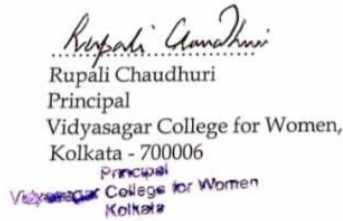 Rupali Chaudhuri
Rupali Chaudhuri
Principal
Vidyasagar College for Women,
Kolkata - 700006
Principal
Vidyasagar College for Women
Kolkata